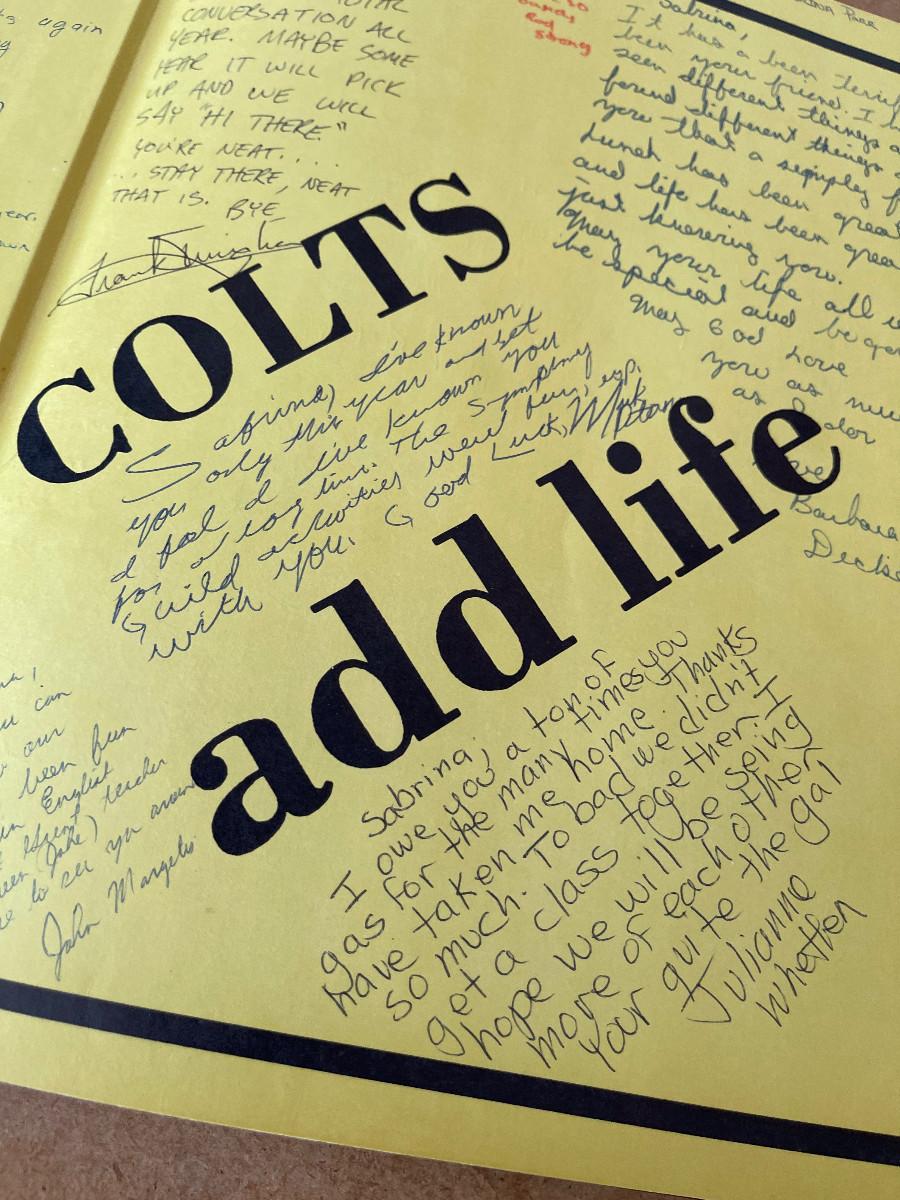 again
CONVERSATION ALL
YEAR. MAYBE SOME
YEAR IT WILL PICK
UP AND WE WILL
SAY "HI THERE."
YOU'RE NEAT....
...STAY THERE, NEAT
THAT IS. BYE
Sabrina,
It has a been
been your friend. I
seen different things
found different things
you that a
Lunch has been great
and life has been
just knowing you.
May your life all
be special and be
May God love
you as
as
Barbara
COLTS
Sabrina, I've known
you only this year and yet
I feel I I've known you
for a long time. The Symphony
Guild activities were fun, esp.
with you. Good Luck,
add life
can
our
been fun
English
teacher
(Jake)
to see ya
John
Sabrina,
I owe you a ton of
gas for the many times you
have taken me home. Thanks
so much. To bad we didn't
get a class together. I
hope we will be seing
more of each other
Your quite the gal
Julianne
Whetten